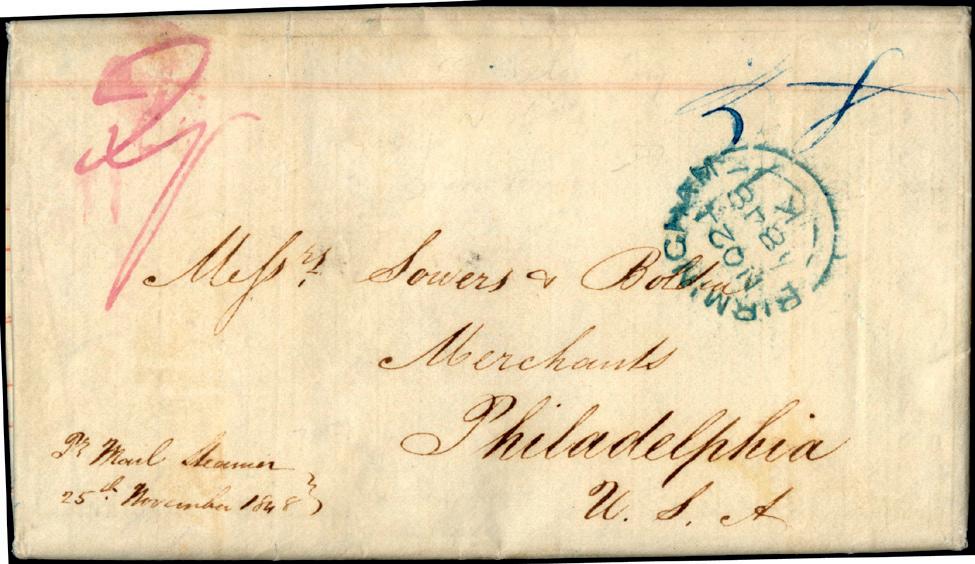 Messrs. Sowers &
Merchants
Philadelphia
U. S. A
Pr Mail Steamer
25th. November 1848
BIRMINGHAM
NO 24
1848
K